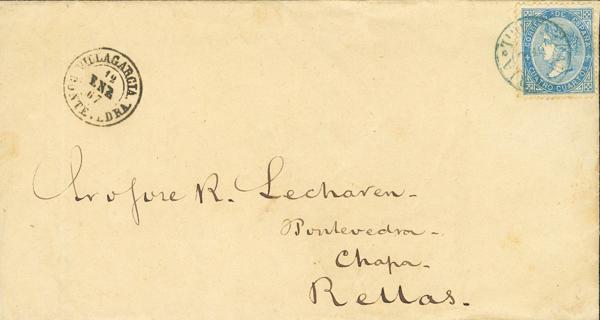 CORREOS DE ESPAÑA
CUATRO CUARTOS
VILLAGARCIA.
12
ENE
67
PONTEVEDRA.
José R. Lecharen-
Pontevedra-
Chapa-
Rellas.